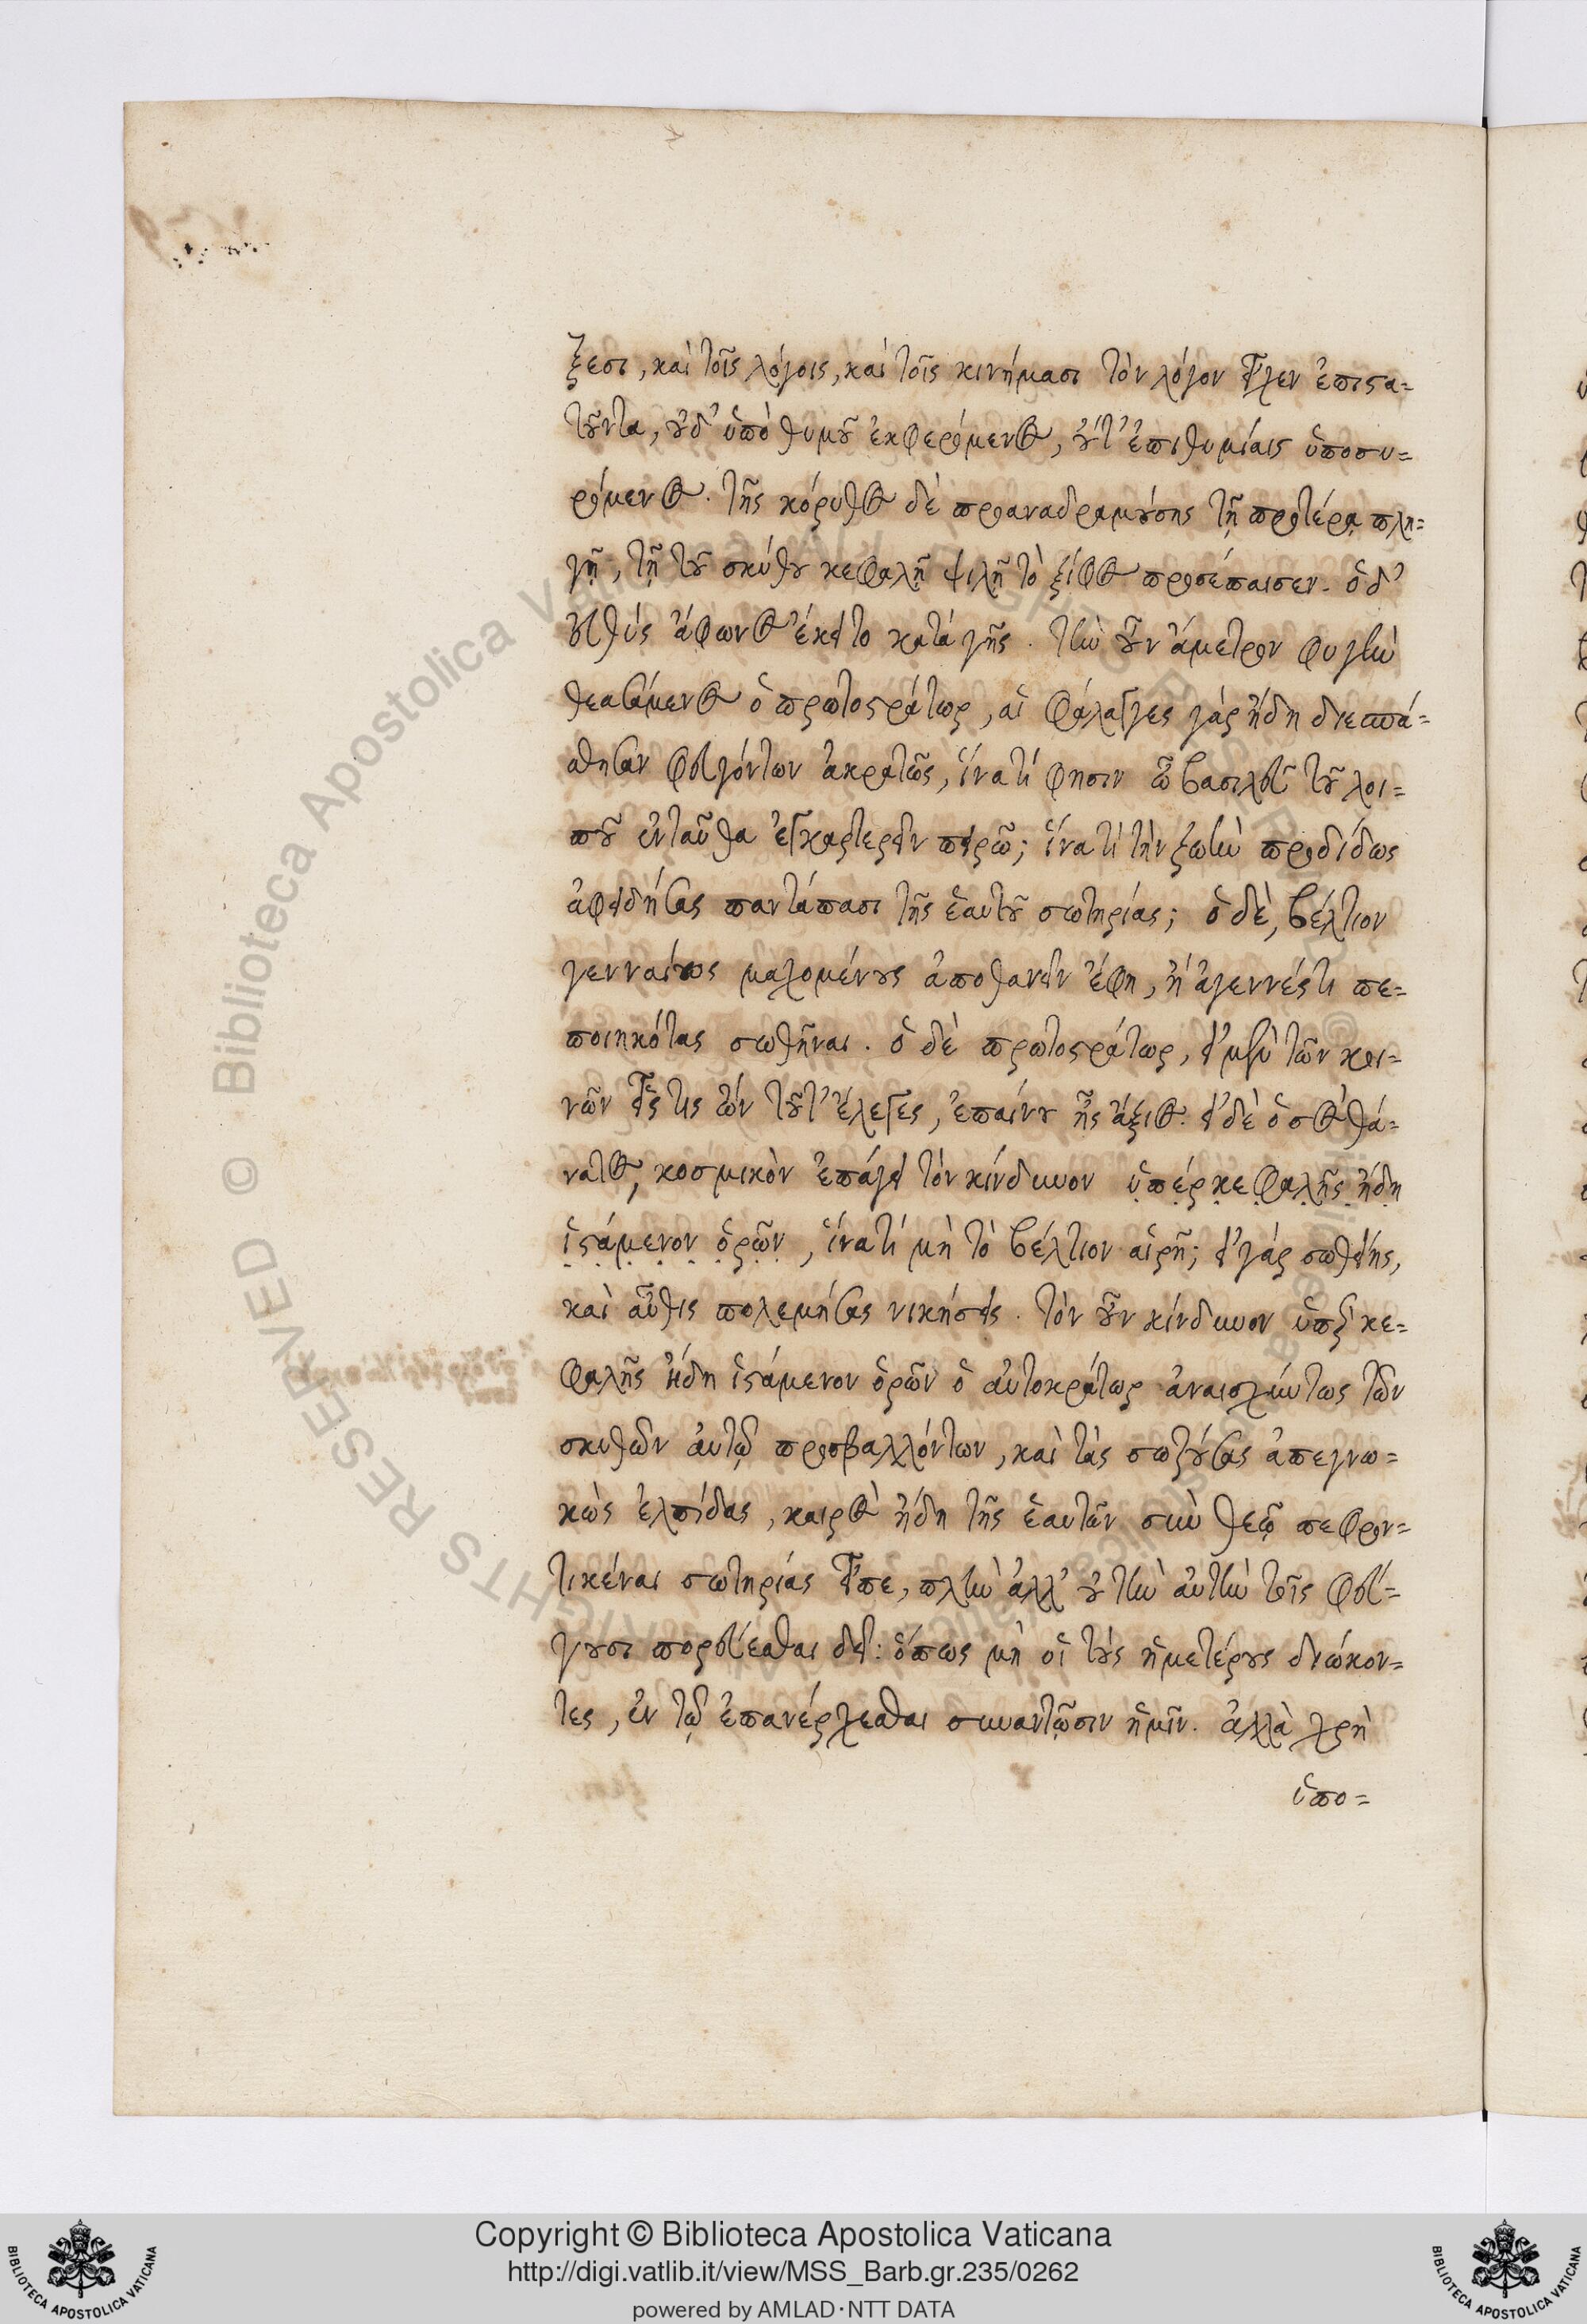 ξεσι, καὶ τοῖς λόγοις, καὶ τοῖς κινήμασι τὸν λόγον εἶχεν ἐπιστα=
τοῦντα, οὐδ' ὑπὸ θυμοῦ ἐκφερόμενος, οὐτ' ἐπιθυμίαις ὑποσυ=
ρόμενος. τῆς κόρυθος δὲ προαναδραμούσης τῇ προτέρᾳ πλη=
γῇ, τῇ τοῦ σκύθου κεφαλῇ ψιλῇ τὸ ξίφος προσέπαισεν. ὁ δ'
εὐθὺς ἄφωνος ἔκειτο κατὰ γῆς. τὴν οὖν ἄμετρον φυγὴν
θεασάμενος ὁ πρωτοστράτωρ, αἱ φάλαγγες γὰρ ἤδη διεσπά=
σθησαν φευγόντων ἀκρατῶς, ἵνα τί φησιν ὦ βασιλεῦ τοῦ λοι=
ποῦ ἐνταῦθα ἐγκαρτερεῖν πειρῶ; ἵνα τί τὴν ζωὴν προδίδως
ἀφειδήσας παντάπασι τῆς ἑαυτοῦ σωτηρίας; ὁ δὲ, βέλτιον
γενναίως μαχομένους ἀποθανεῖν ἔφη, ἢ ἀγεννές τι πε=
ποιηκότας σωθῆναι. ὁ δὲ πρωτοστράτωρ, εἰ μὲν τῶν κοι=
νῶν εἷς τις ὢν τοῦτ' ἔλεγες, ἐπαίνου ἦς ἄξιος. εἰ δὲ ὁ σὸς θά=
νατος, κοσμικὸν ἐπάγει τὸν κίνδυνον ὑπὲρ κεφαλῆς ἤδη
ἱστάμενον ὁρῶν, ἵνα τί μὴ τὸ βέλτιον αἱρῇ; εἰ γὰρ σωθείης,
καὶ αὖθις πολεμήσας νικήσεις. τὸν οὖν κίνδυνον ὑπὲρ κε=
φαλῆς ἤδη ἱστάμενον ὁρῶν ὁ αὐτοκράτωρ ἀναισχύντως τῶν
σκυθῶν αὐτῷ προσβαλλόντων, καὶ τὰς σωζούσας ἀπεγνω=
κὼς ἐλπίδας, καιρὸς ἤδη τῆς ἑαυτῶν σὺν θεῷ πεφρον=
τικέναι σωτηρίας εἶπε, πλὴν ἀλλ' οὐ τὴν αὐτὴν τοῖς φεύ=
γουσι πορεύεσθαι δεῖ: ὅπως μὴ οἱ τοὺς ἡμετέρους διώκον=
τες, ἐν τῷ ἐπανέρχεσθαι συναντῷσιν ἡμῖν. ἀλλὰ χρὴ
ὑπο=
Copyright © Biblioteca Apostolica Vaticana
http://digi.vatlib.it/view/MSS_Barb.gr.235/0262
powered by AMLAD·NTT DATA